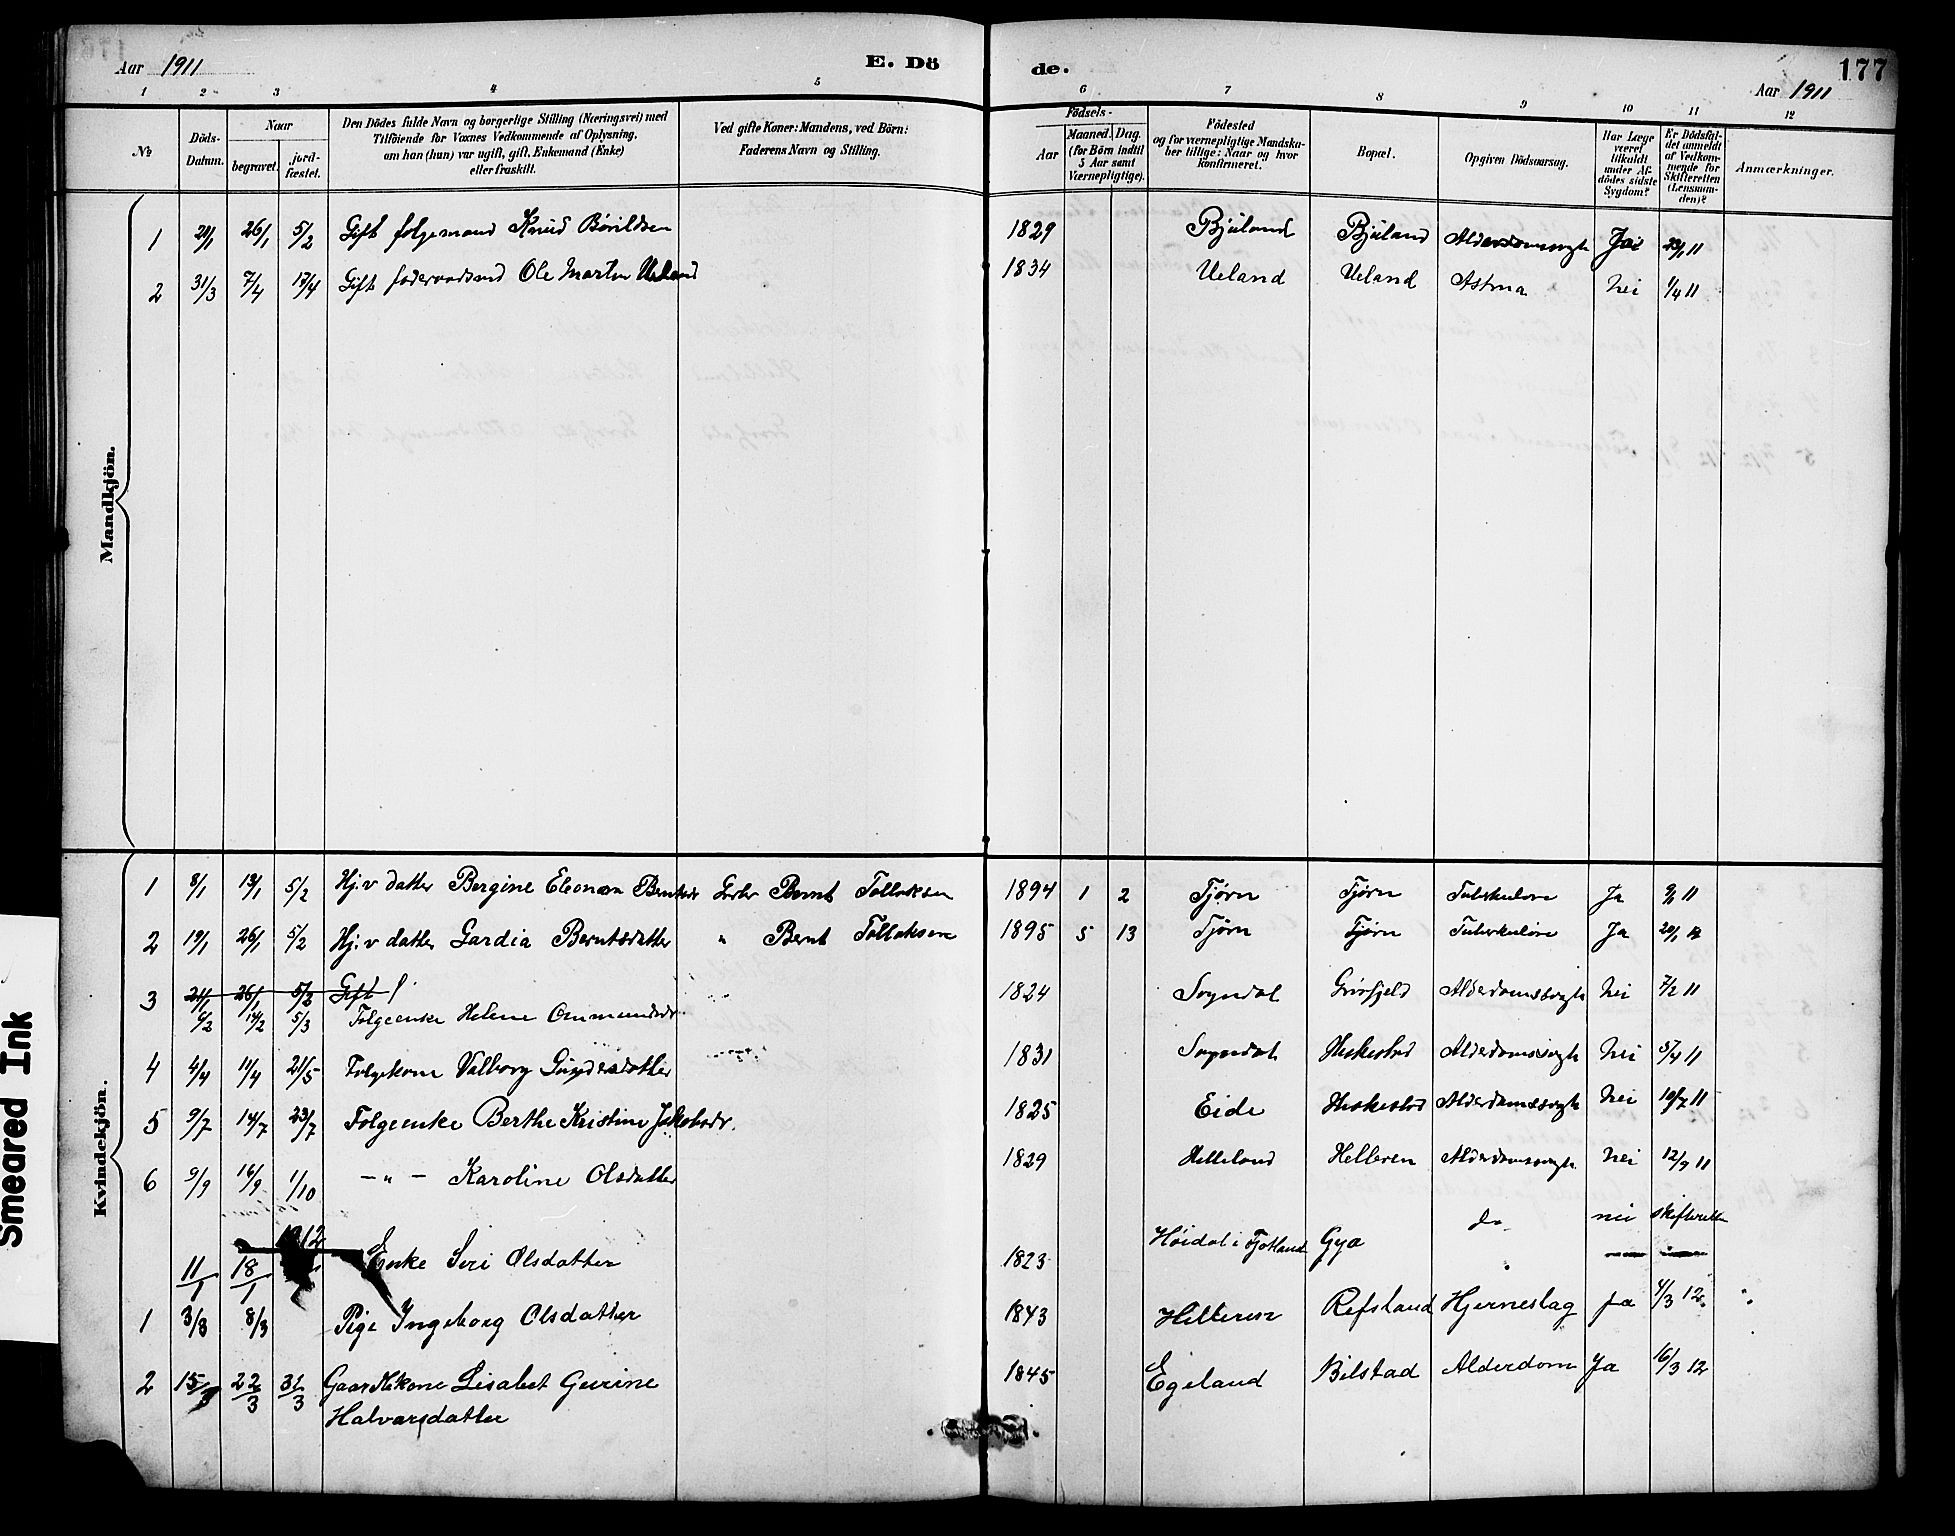 Aar 1911 E. Dö de. Aar 1911 177
1 2 3 4 5 6 7 8 9 10 11 12
№
Döds-Datum.
Naar
begravet.
jord-fæstet.
Den Dödes fulde Navn og borgerlige Stilling (Næringsvei) med
Tilföiende for Voxnes Vedkommende af Oplysning,
om han (hun) var ugift, gift, Enkemand (Enke)
eller fraskilt.
Ved gifte Koner: Mandens, ved Börn:
Faderens Navn og Stilling.
Födsels-
Aar
Maaned. Dag.
(for Börn indtil
5 Aar samt
Værnepligtige).
Födested
og for værnepligtige Mandska-
ber tillige: Naar og hvor
konfirmeret.
Bopæl.
Opgiven Dödsaarsag.
Har Læge
været
tilkaldt
under Af-
dödes sidste
Sygdom?
Er Dödsfal-
det anmeldt
af Vedkom-
mende for
Skifteretten
(Lensman-
den)?
Anmærkninger.
Mandkjön.
1 26/1 5/2 Gift folgemand Knud Børildsen 1829 Bjuland Bjuland Alderdomssvagh Ja 23/1 11
2 31/3 7/4 17/4 Gift foderraadsmd Ole Martin Ueland 1834 Ueland Ueland Astma Nei 1/4 11
Kvindekjön.
1 8/1 13/1 5/2 Hj.v datter Bergine Eleonora Berntsdr Bernt Tollaksen 1894 1 2 Tjørn Tjørn Tuberkulose Ja 9/1 11
2 19/1 26/1 5/2 Hj.v datter Gardia Berntsdatter " Bernt Tollaksen 1895 5 13 Tjørn Tjørn Tuberkulose Ja 20/1
3 21/1 26/1 5/2 Gift
6/2 14/2 5/3 Folgeenke Helene Ommundsdr. 1824 Sogndal Grøsfjeld Alderdomssvagh Nei 7/2 11
4 4/4 11/4 21/5 Folgekone Valborg Gundersdatter 1831 Sogndal Heskestad Alderdomssvagh Nei 5/4 11
5 9/7 14/7 23/7 Folgeenke Berthe Kristine Jakobsdr. 1825 Eide Heskestad Alderdomssvagh Nei 10/7 11
6 9/9 16/9 1/10 — " — Karoline Olsdatter 1829 Helleland Helleren Alderdomssvagh Nei 12/9 11
1912
11/1 18/1 Enke Siri Olsdatter 1823 Høidal i Fjotland Gya do nei skifteretten
1 3/3 8/3 Pige Ingeborg Olsdatter 1843 Helleren Refsland Hjerneslag Ja 4/3 12.
2 15/3 22/3 31/3 Gaardmkone Lisabet Gurine 1845 Egeland Bilstad Alderdom Ja 16/3 12
Halvarsdatter
Smeared Ink